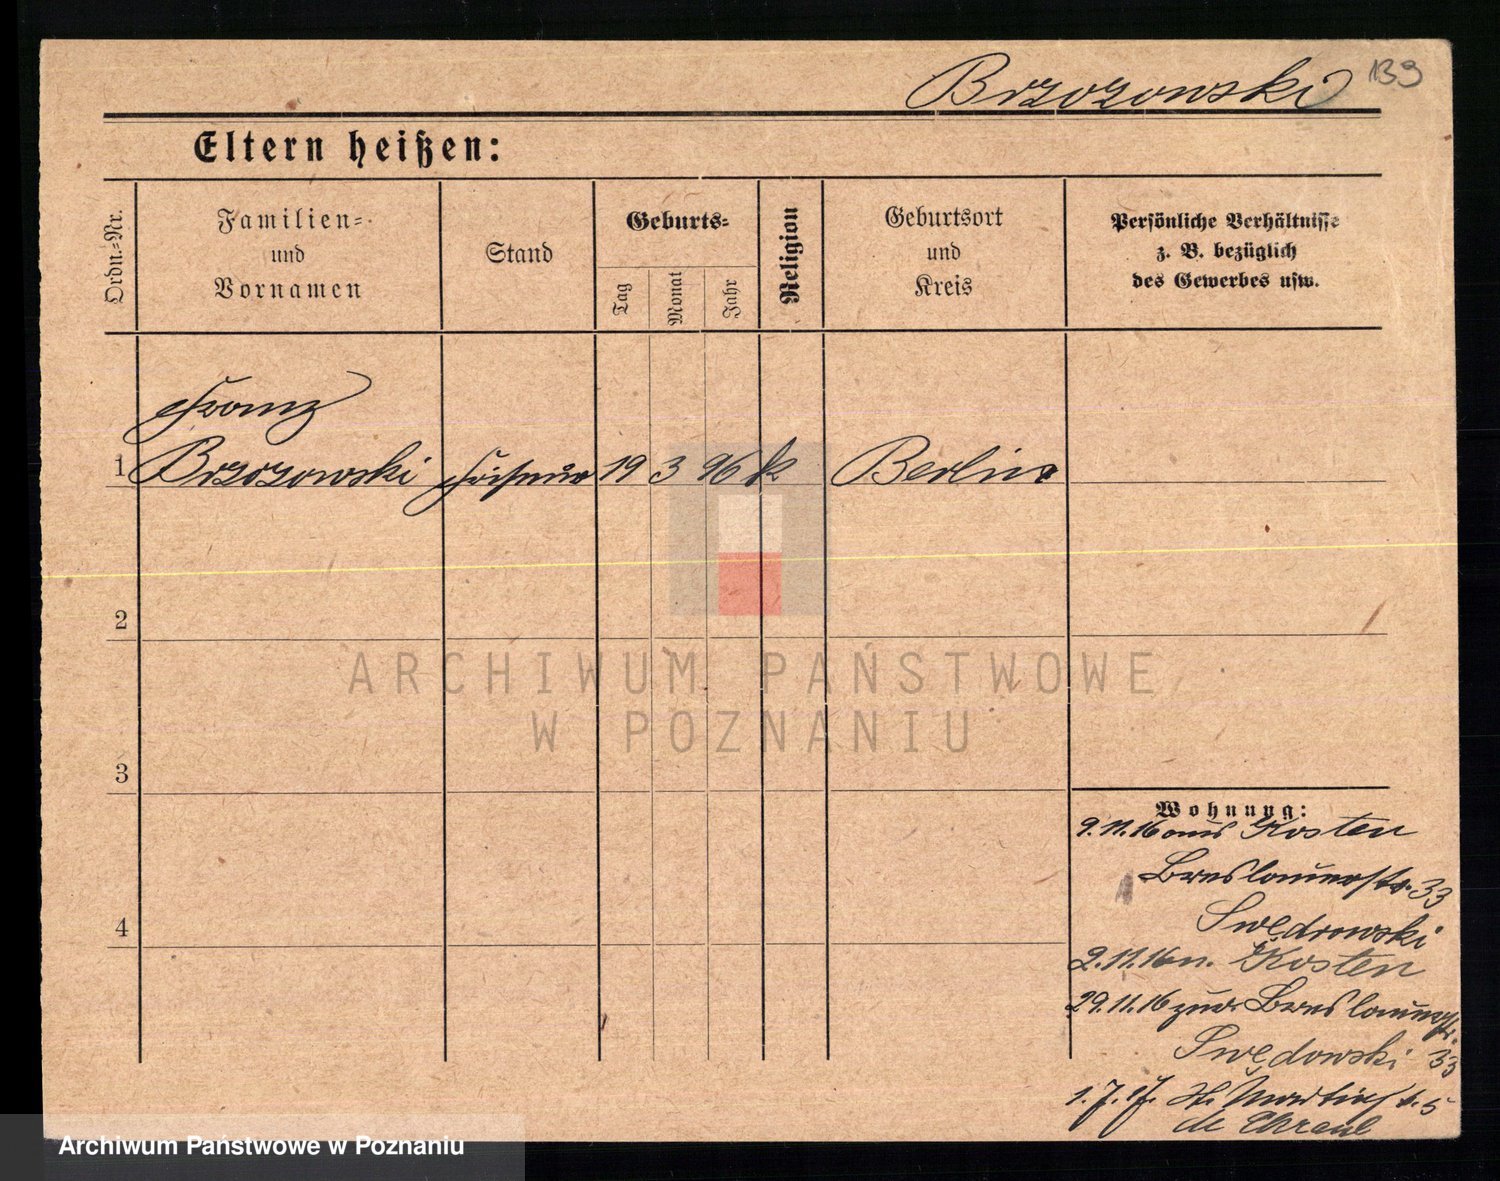 Brzozowski 139
Eltern heißen:
Ordn.-Nr.
Familien-
und
Vornamen
Stand
Geburts-
Tag
Monat
Jahr
Religion
Geburtsort
und
Kreis
Persönliche Verhältnisse
z. B. bezüglich
des Gewerbes usw.
Franz
1 Brzozowski 19 3 96 k Berlin
2
3
4
ARCHIWUM PAŃSTWOWE
W POZNANIU
Wohnung:
9.11.16 aus Kosten
Breslauerstr. 33
Swędrowski
2.11.16 n. Kosten
29.11.16 zur Breslauerstr.
Swędowski 33
1.7.17. St. Martinst. 5
Archiwum Państwowe w Poznaniu